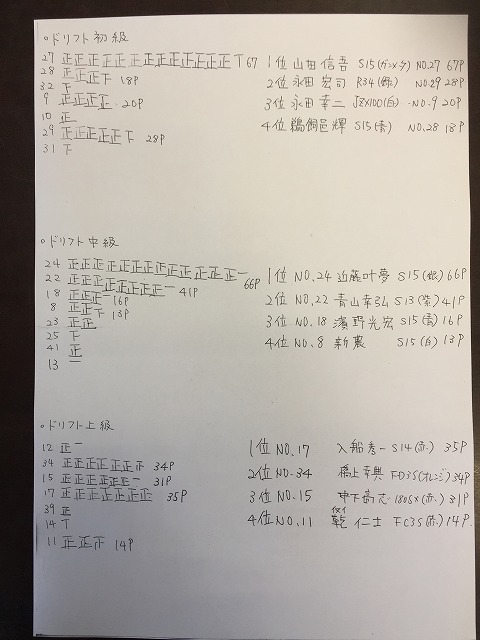 ○ドリフト初級
27 正正正正正正正正正正正正正T 67 1位 山田信吾 S15(ガンメタ) NO.27 67P
28 正正正下 18P 2位 永田宏司 R34(銀) NO.29 28P
32 下
9 正正正正 20P 3位 永田幸二 JZX100(白) NO.9 20P
10 正
29 正正正正正下 28P 4位 鵜飼邑輝 S15(青) NO.28 18P
31 下
○ドリフト中級
24 正正正正正正正正正正正正正一 66P 1位 NO.24 近藤叶夢 S15(銀) 66P
22 正正正正正正正正一 41P 2位 NO.22 青山幸弘 S13(紫) 41P
18 正正正一 16P 3位 NO.18 濱野光宏 S15(青) 16P
8 正正下 13P 4位 NO.8 新農 S15(白) 13P
23 正正
25 下
41 正
13 一
○ドリフト上級
12 正一 1位 NO.17 入船秀一 S14(赤) 35P
34 正正正正正正 34P 2位 NO.34 橋上幸典 FD3S(オレンジ) 34P
15 正正正正正正一 31P 3位 NO.15 中下高志 180SX(赤) 31P
17 正正正正正正正 35P
39 正 4位 NO.11 乾 仁士 FC3S(赤) 14P
14 T
11 正正正 14P